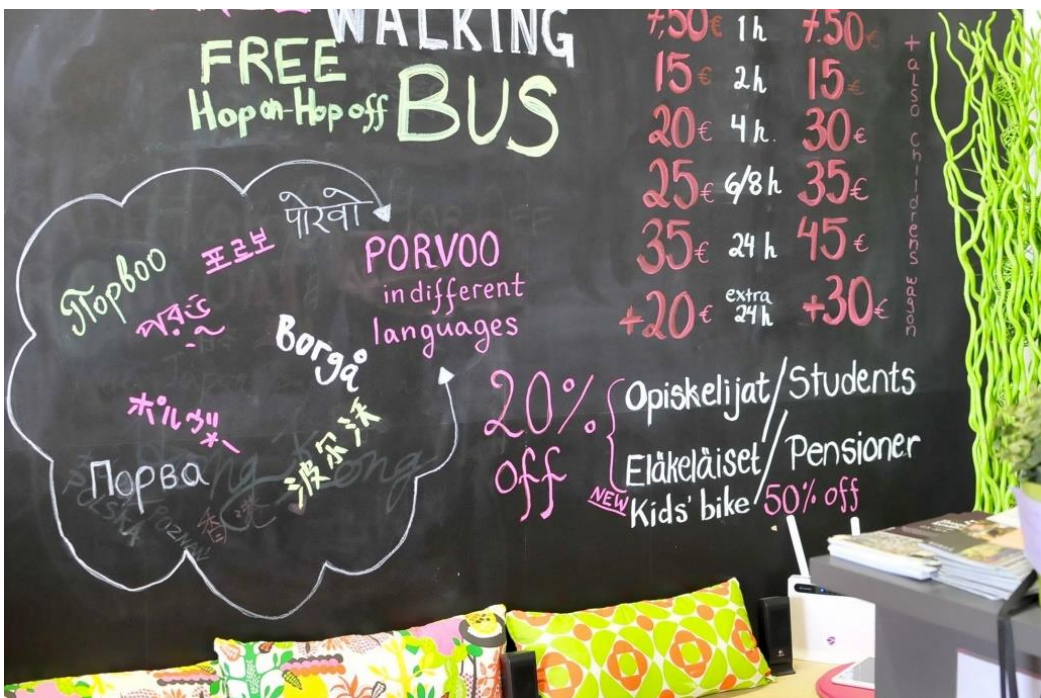 WALKING
FREE
Hop on-Hop off BUS
7,50€ 1h 7.50€
15€ 2h 15€
20€ 4h. 30€
25€ 6/8h 35€
35€ 24h 45€
+20€ extra 24h +30€
+also childrens wagon
पोरवो
포르보
Порвоо
PORVOO
in different
languages
Borgå
ポルヴォー
波尔沃
Порва
POZNAŃ
20% off
Opiskelijat/Students
Eläkeläiset/Pensioner
NEW Kids' bike 50% off